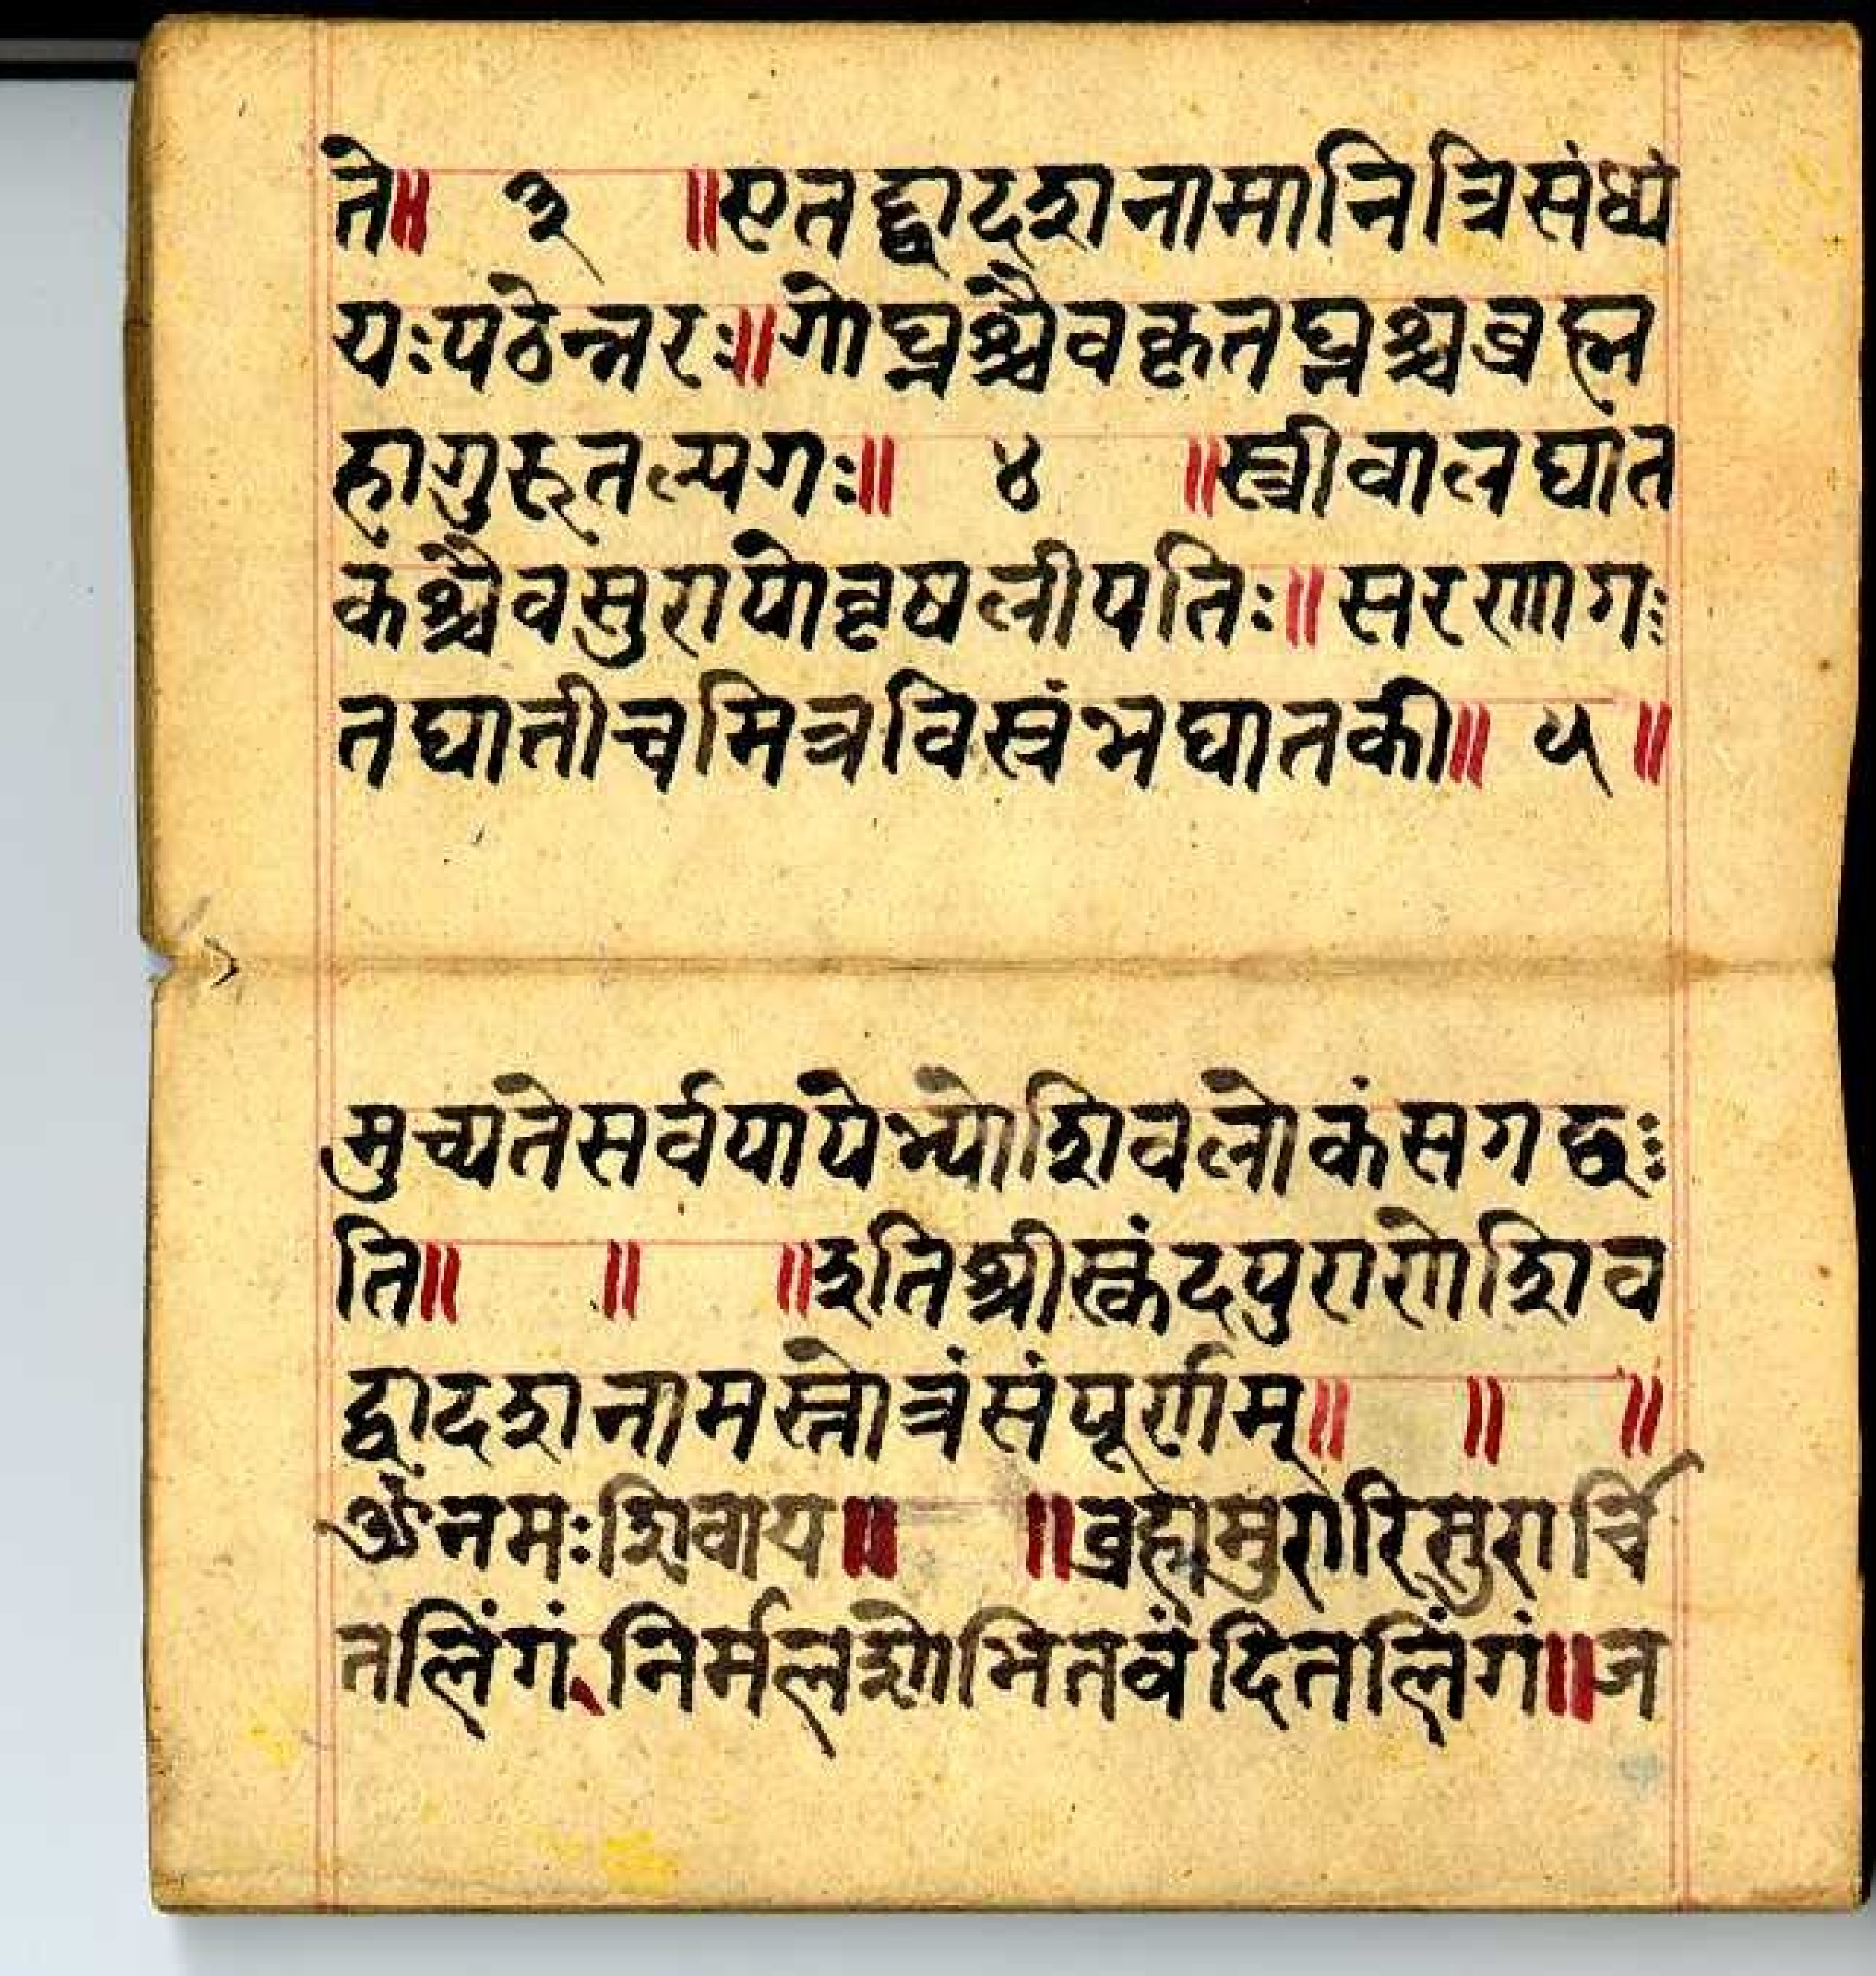 ते॥ ३ ॥एतद्द्वादशनामानित्रिसंध्यं
यःपठेन्नरः॥गोघ्नश्चैवकृतघ्नश्चब्रह्म
हागुरुतल्पगः॥ ४ ॥स्त्रीवालघात
कंश्चैवसुरापोवृषलीपतिः॥सरणागः
तघातीचमित्रविस्रंभघातकी॥ ५ ॥
मुच्यतेसर्वपापेभ्योशिवलोकंसगछः
ति॥ ॥ ॥इतिश्रीस्कंदपुराणेशिव
द्वादशनामस्तोत्रंसंपूर्णम्॥ ॥ ॥
ॐनमःशिवाय॥ ॥ब्रह्ममुरारिसुरार्चि
तलिंगं निर्मलशोभितवंदितलिंगं॥ज